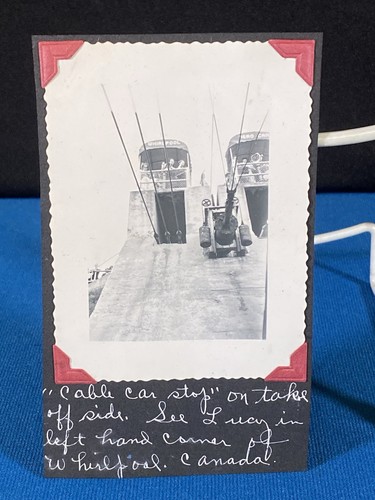 "Cable car stop" on take
off side. See Lucy in
left hand corner of
Whirlpool. Canada.